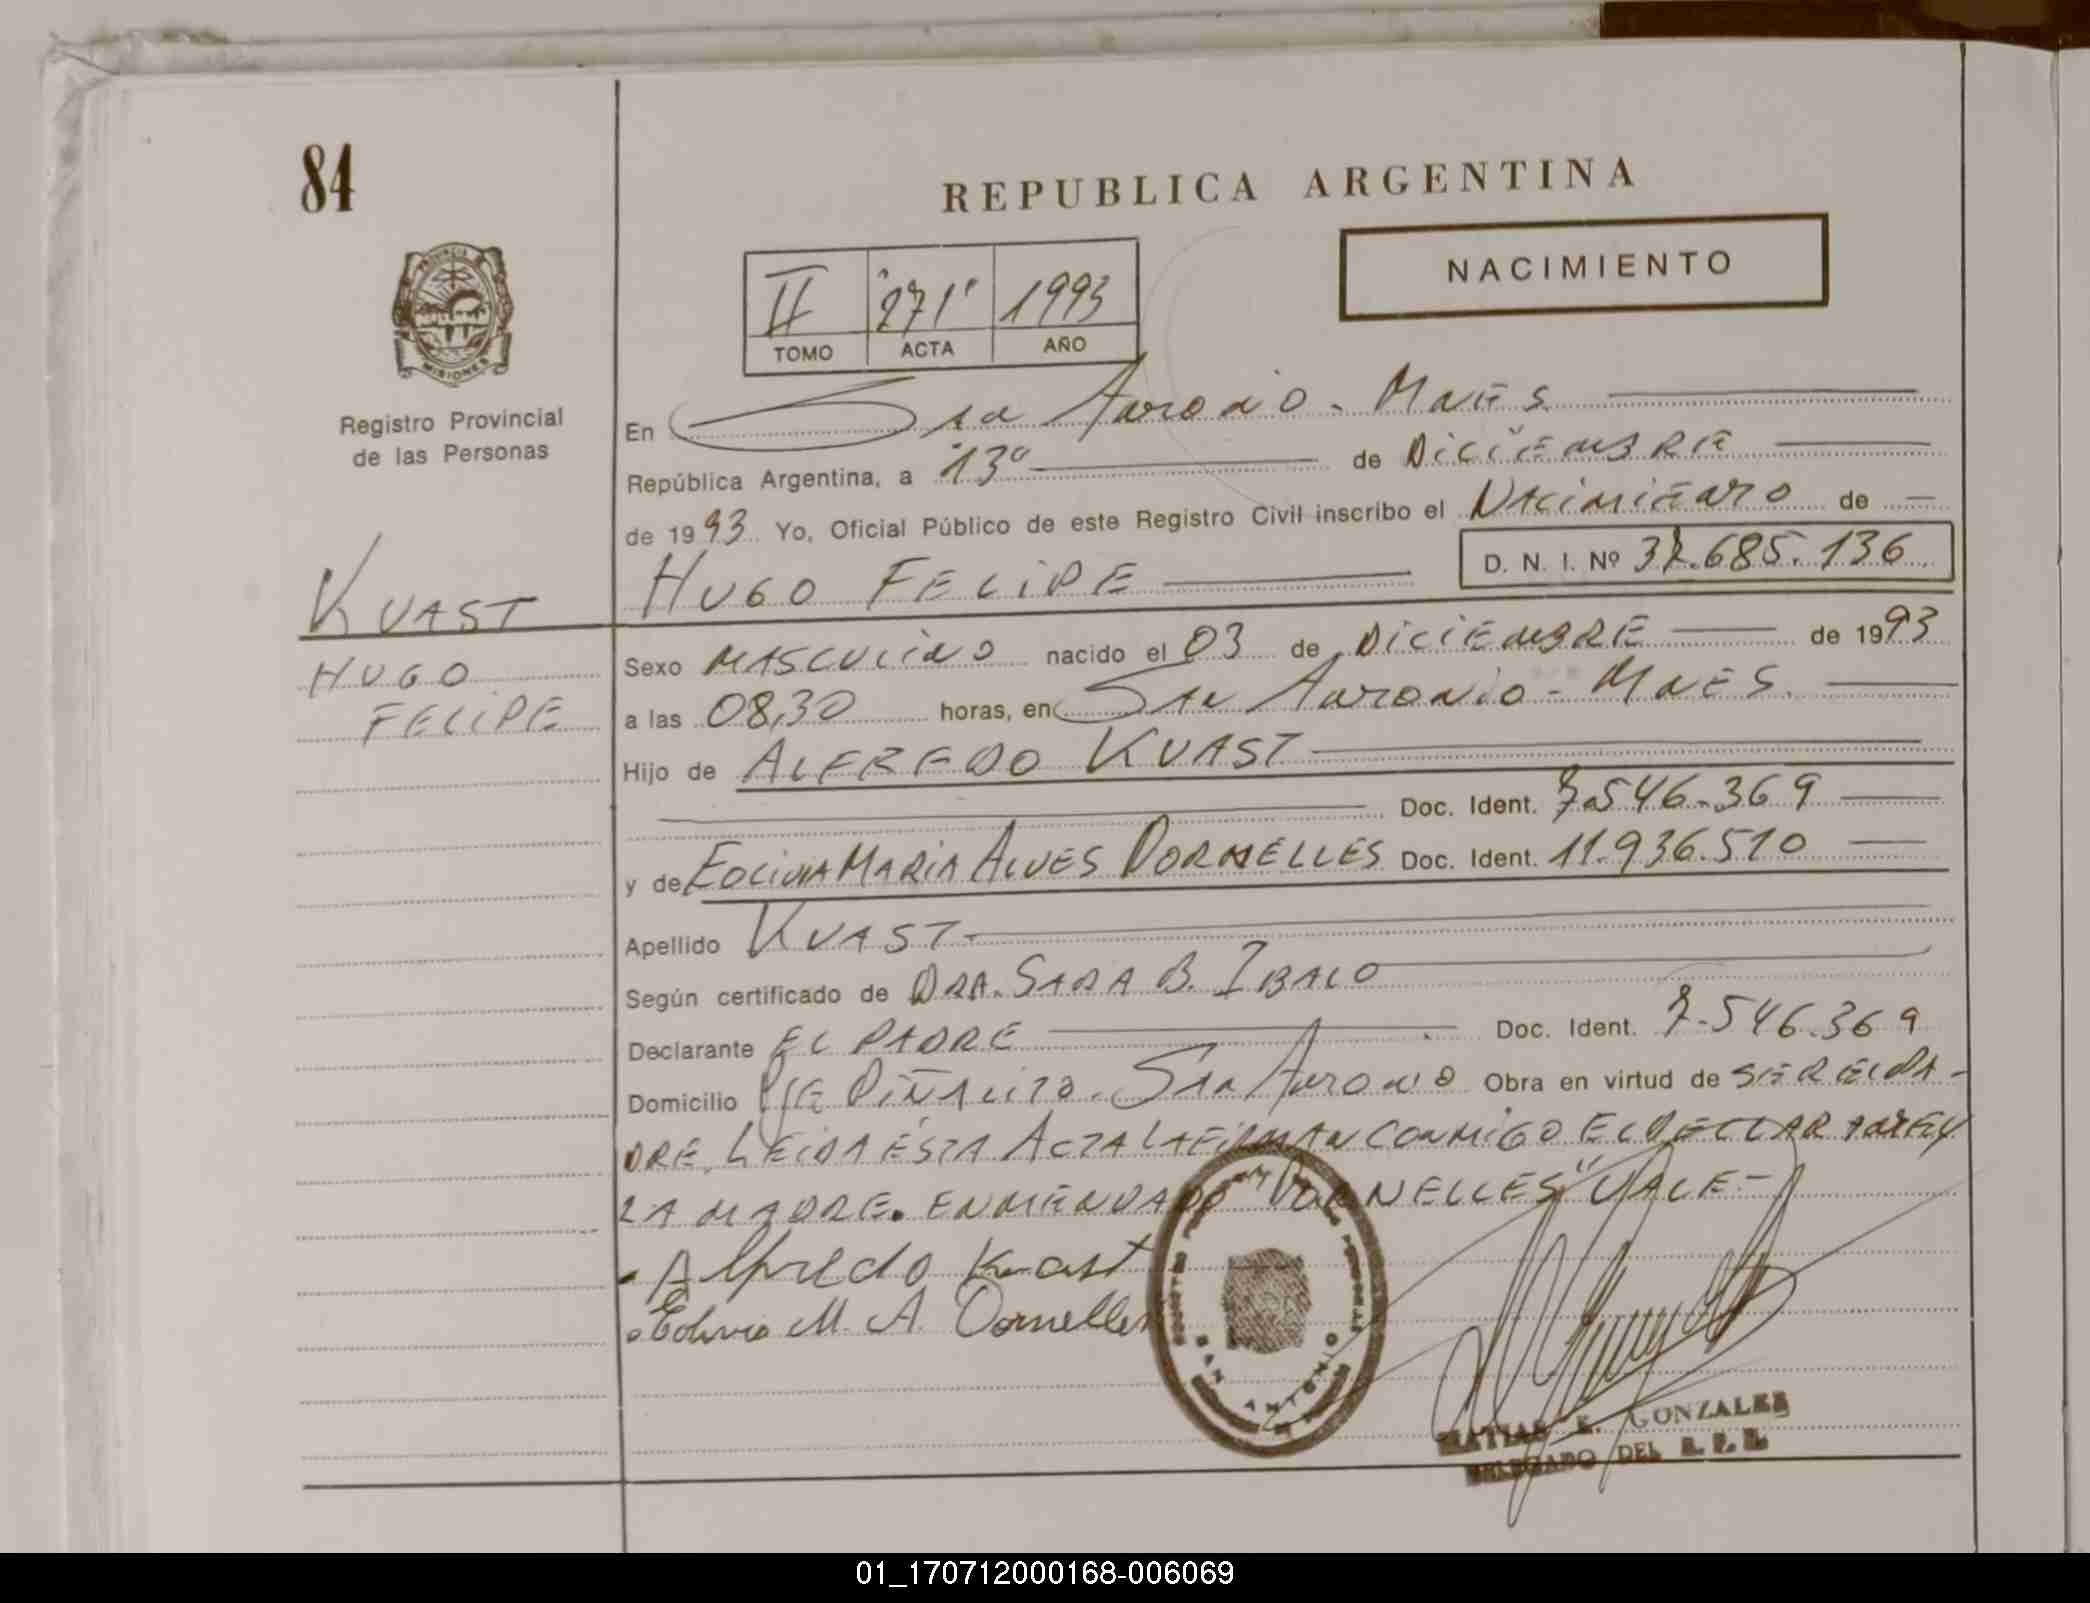 84
REPUBLICA ARGENTINA
NACIMIENTO
II 271 1993
TOMO ACTA AÑO
PROVINCIA DE
MISIONES
Registro Provincial
de las Personas
En San Antonio - Mnes
República Argentina, a 13 de Diciembre
de 1993 Yo, Oficial Público de este Registro Civil inscribo el Nacimiento de
KUAST
HUGO FELIPE
D. N. I. Nº 37.685.136
HUGO
FELIPE
Sexo MASCULINO nacido el 03 de DICIEMBRE de 1993
a las 08,30 horas, en San Antonio - Mnes.
Hijo de ALFREDO KUAST
Doc. Ident. 7.546.369
y de EOLIVIA MARIA ALVES DORNELLES Doc. Ident. 11.936.510
Apellido KUAST
Según certificado de DRA. SARA B. IBALO
Declarante EL PADRE Doc. Ident. 7.546.369
Domicilio Pje PIÑALITO. San Antonio Obra en virtud de SER EL PA-
DRE. LEIDA ESTA ACTA LA FIRMAN CONMIGO EL DECLARANTE Y
LA MADRE. ENMENDADO "DORNELLES" VALE-
Alfredo Kuast
Eolivia M. A. Dornelles
SAN ANTONIO
MATIAS E. GONZALES
DELEGADO DEL R. P. P.
01_170712000168-006069